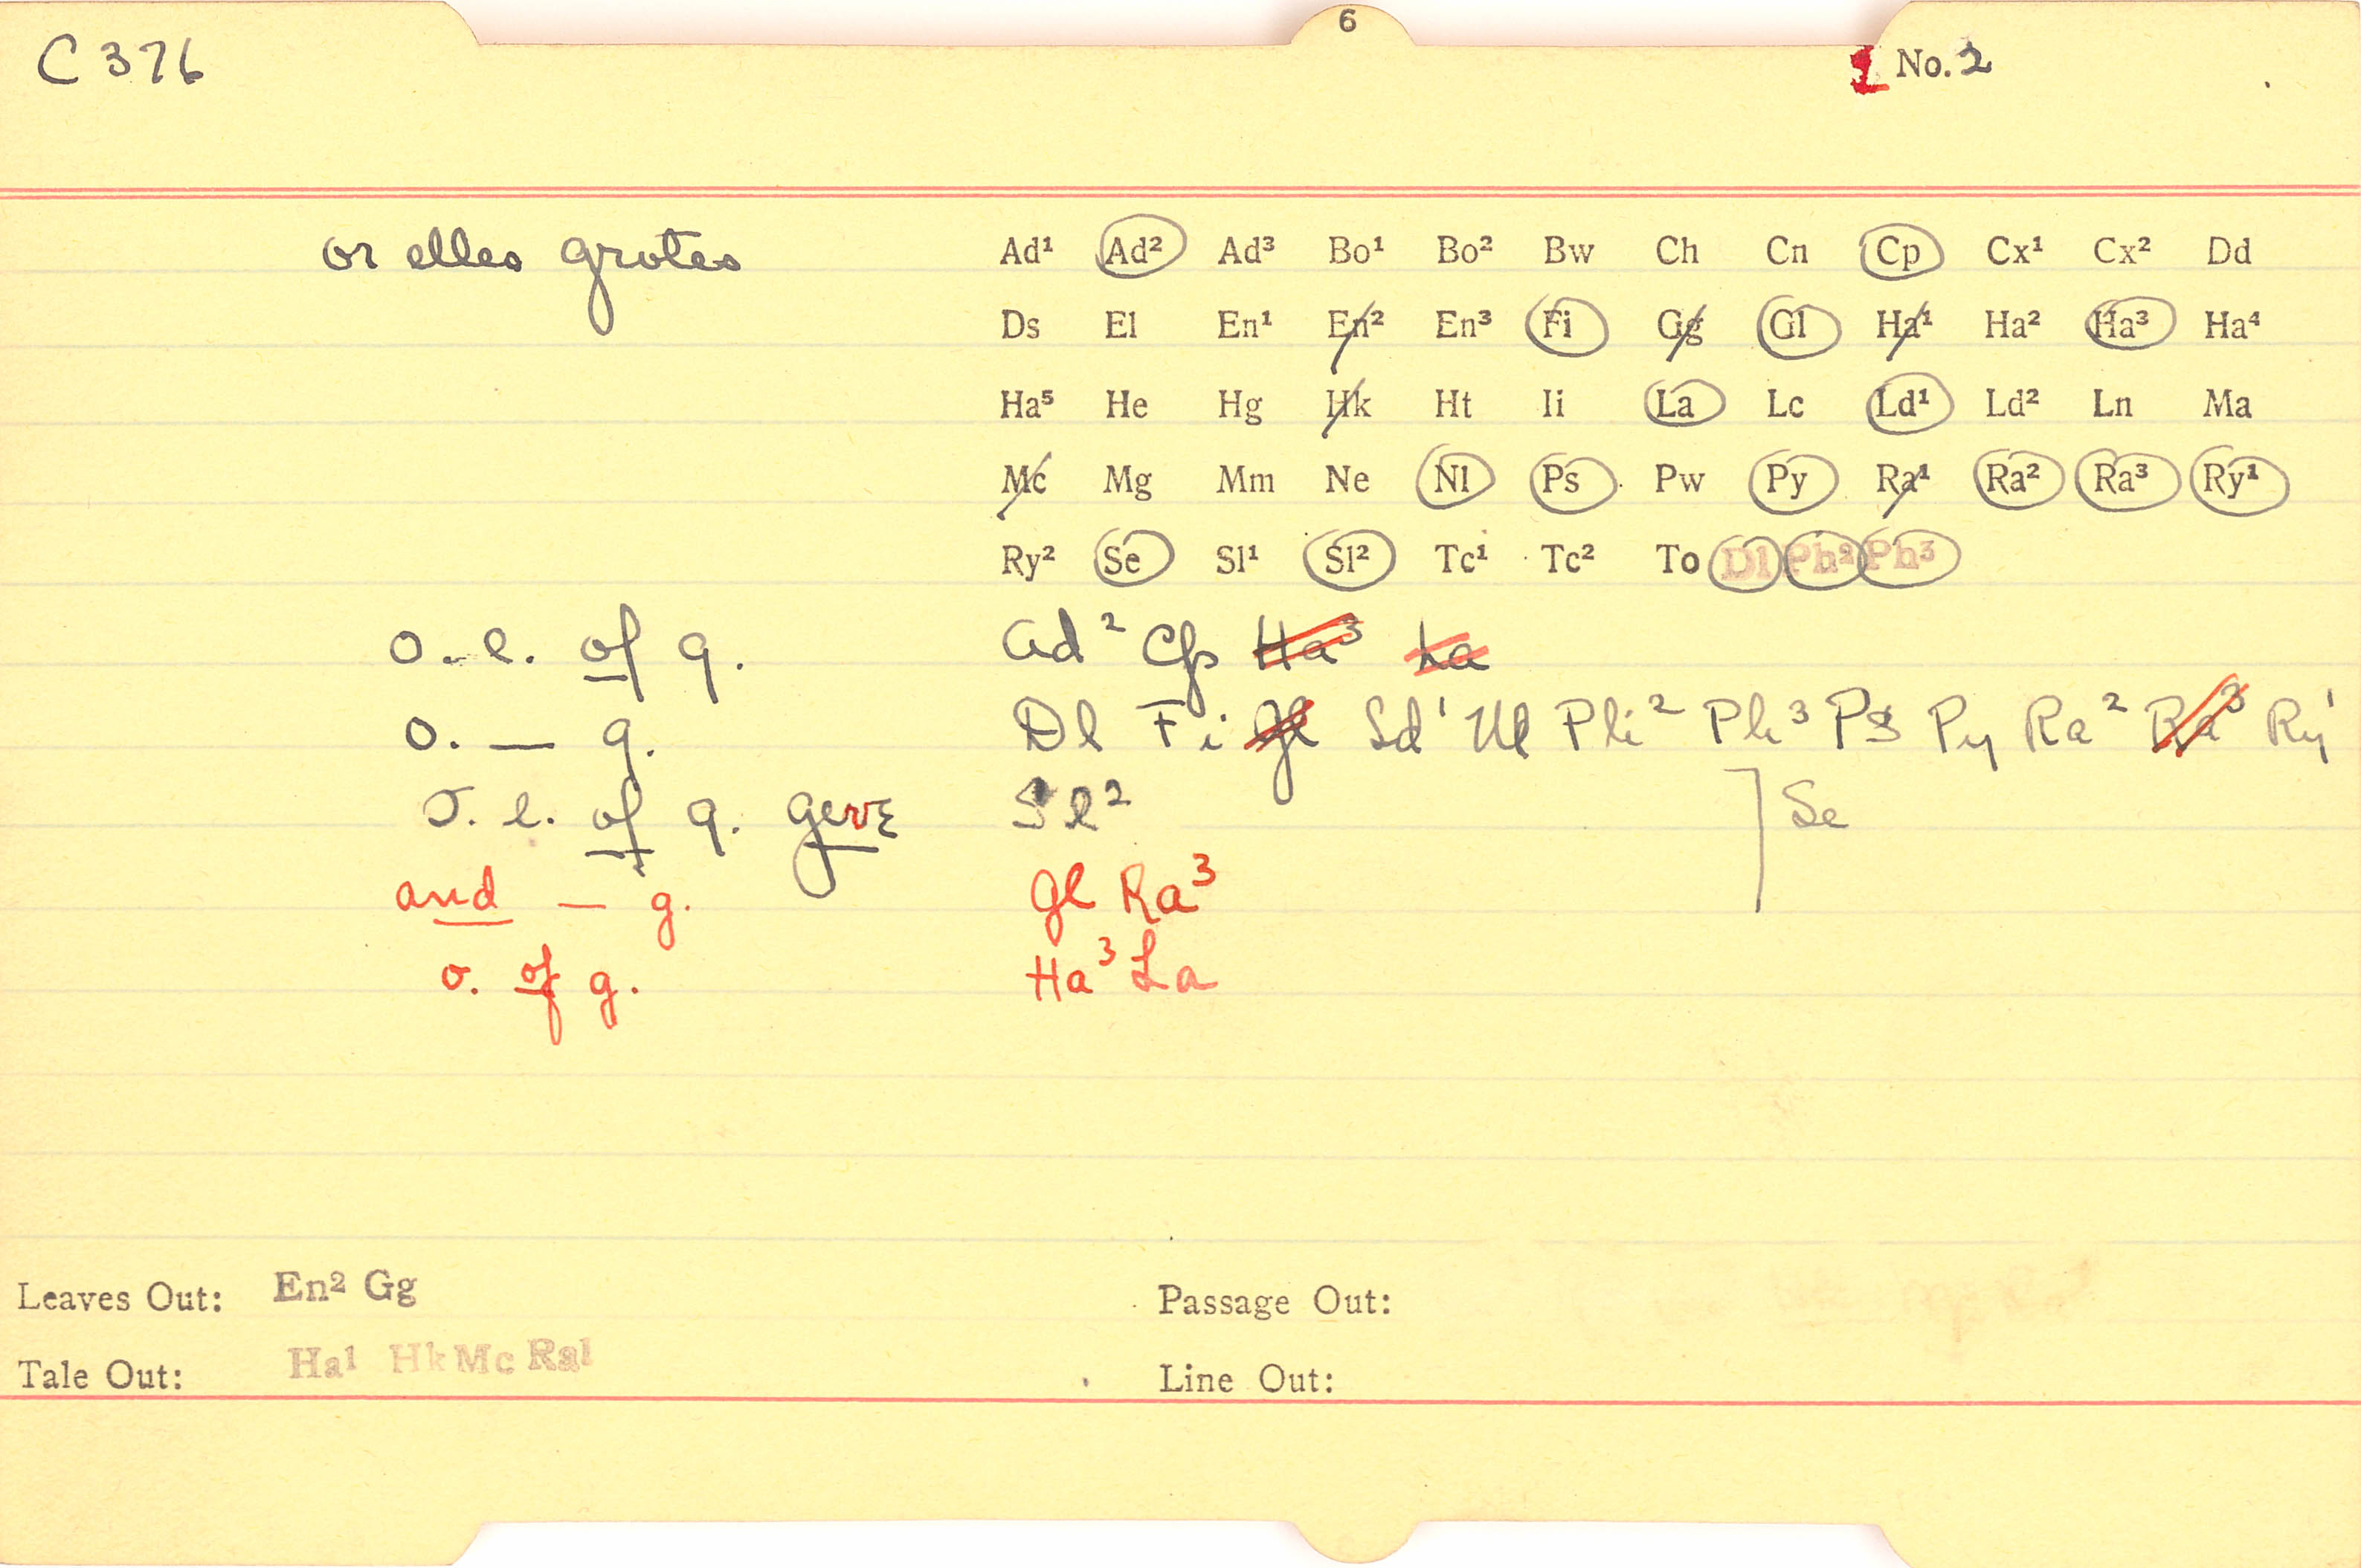 6
C 376
1 No. 2
or elles grotes
Ad¹ Ad² Ad³ Bo¹ Bo² Bw Ch Cn Cp Cx¹ Cx² Dd
Ds El En¹ En² En³ Fi Gg Gl Ha¹ Ha² Ha³ Ha⁴
Ha⁵ He Hg Hk Ht Ii La Lc Ld¹ Ld² Ln Ma
Mc Mg Mm Ne Nl Ps Pw Py Ra¹ Ra² Ra³ Ry¹
Ry² Se Sl¹ Sl² Tc¹ Tc² To Dl Ph² Ph³
o. e. of g. Ad² Cp Ha³ La
o. — g. Dl Fi Gl Ld¹ Nl Ph² Ph³ Ps Py Ra² Ra³ Ry¹
o. e. of g. geve Sl² ] Se
and — g. Gl Ra³
o. of g. Ha³ La
Leaves Out: En² Gg Passage Out:
Tale Out: Ha¹ Hk Mc Ra¹ Line Out: